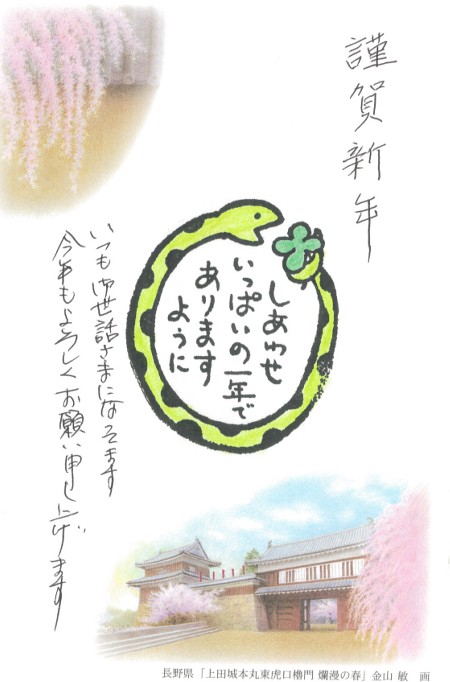 謹賀新年
しあわせ
いっぱいの一年で
あります
ように
いつもお世話さまになってます
今年もよろしくお願い申し上げます
長野県「上田城本丸東虎口櫓門 爛漫の春」金山 敏 画